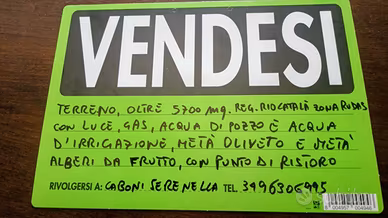 VENDESI
TERRENO, OLTRE 5700 MQ. REG. RIO CATALÀ ZONA RODAS
CON LUCE, GAS, ACQUA DI POZZO È ACQUA
D'IRRIGAZIONE, METÀ OLIVETO E METÀ
ALBERI DA FRUTTO, CON PUNTO DI RISTORO
RIVOLGERSI A: CABONI SERENELLA TEL.